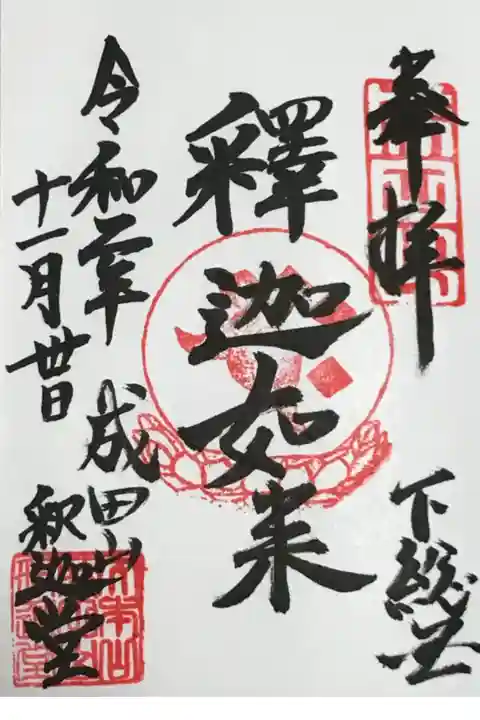 奉拝
下総国
釋迦如来
令和二年
十一月丗日
成田山
釈迦堂